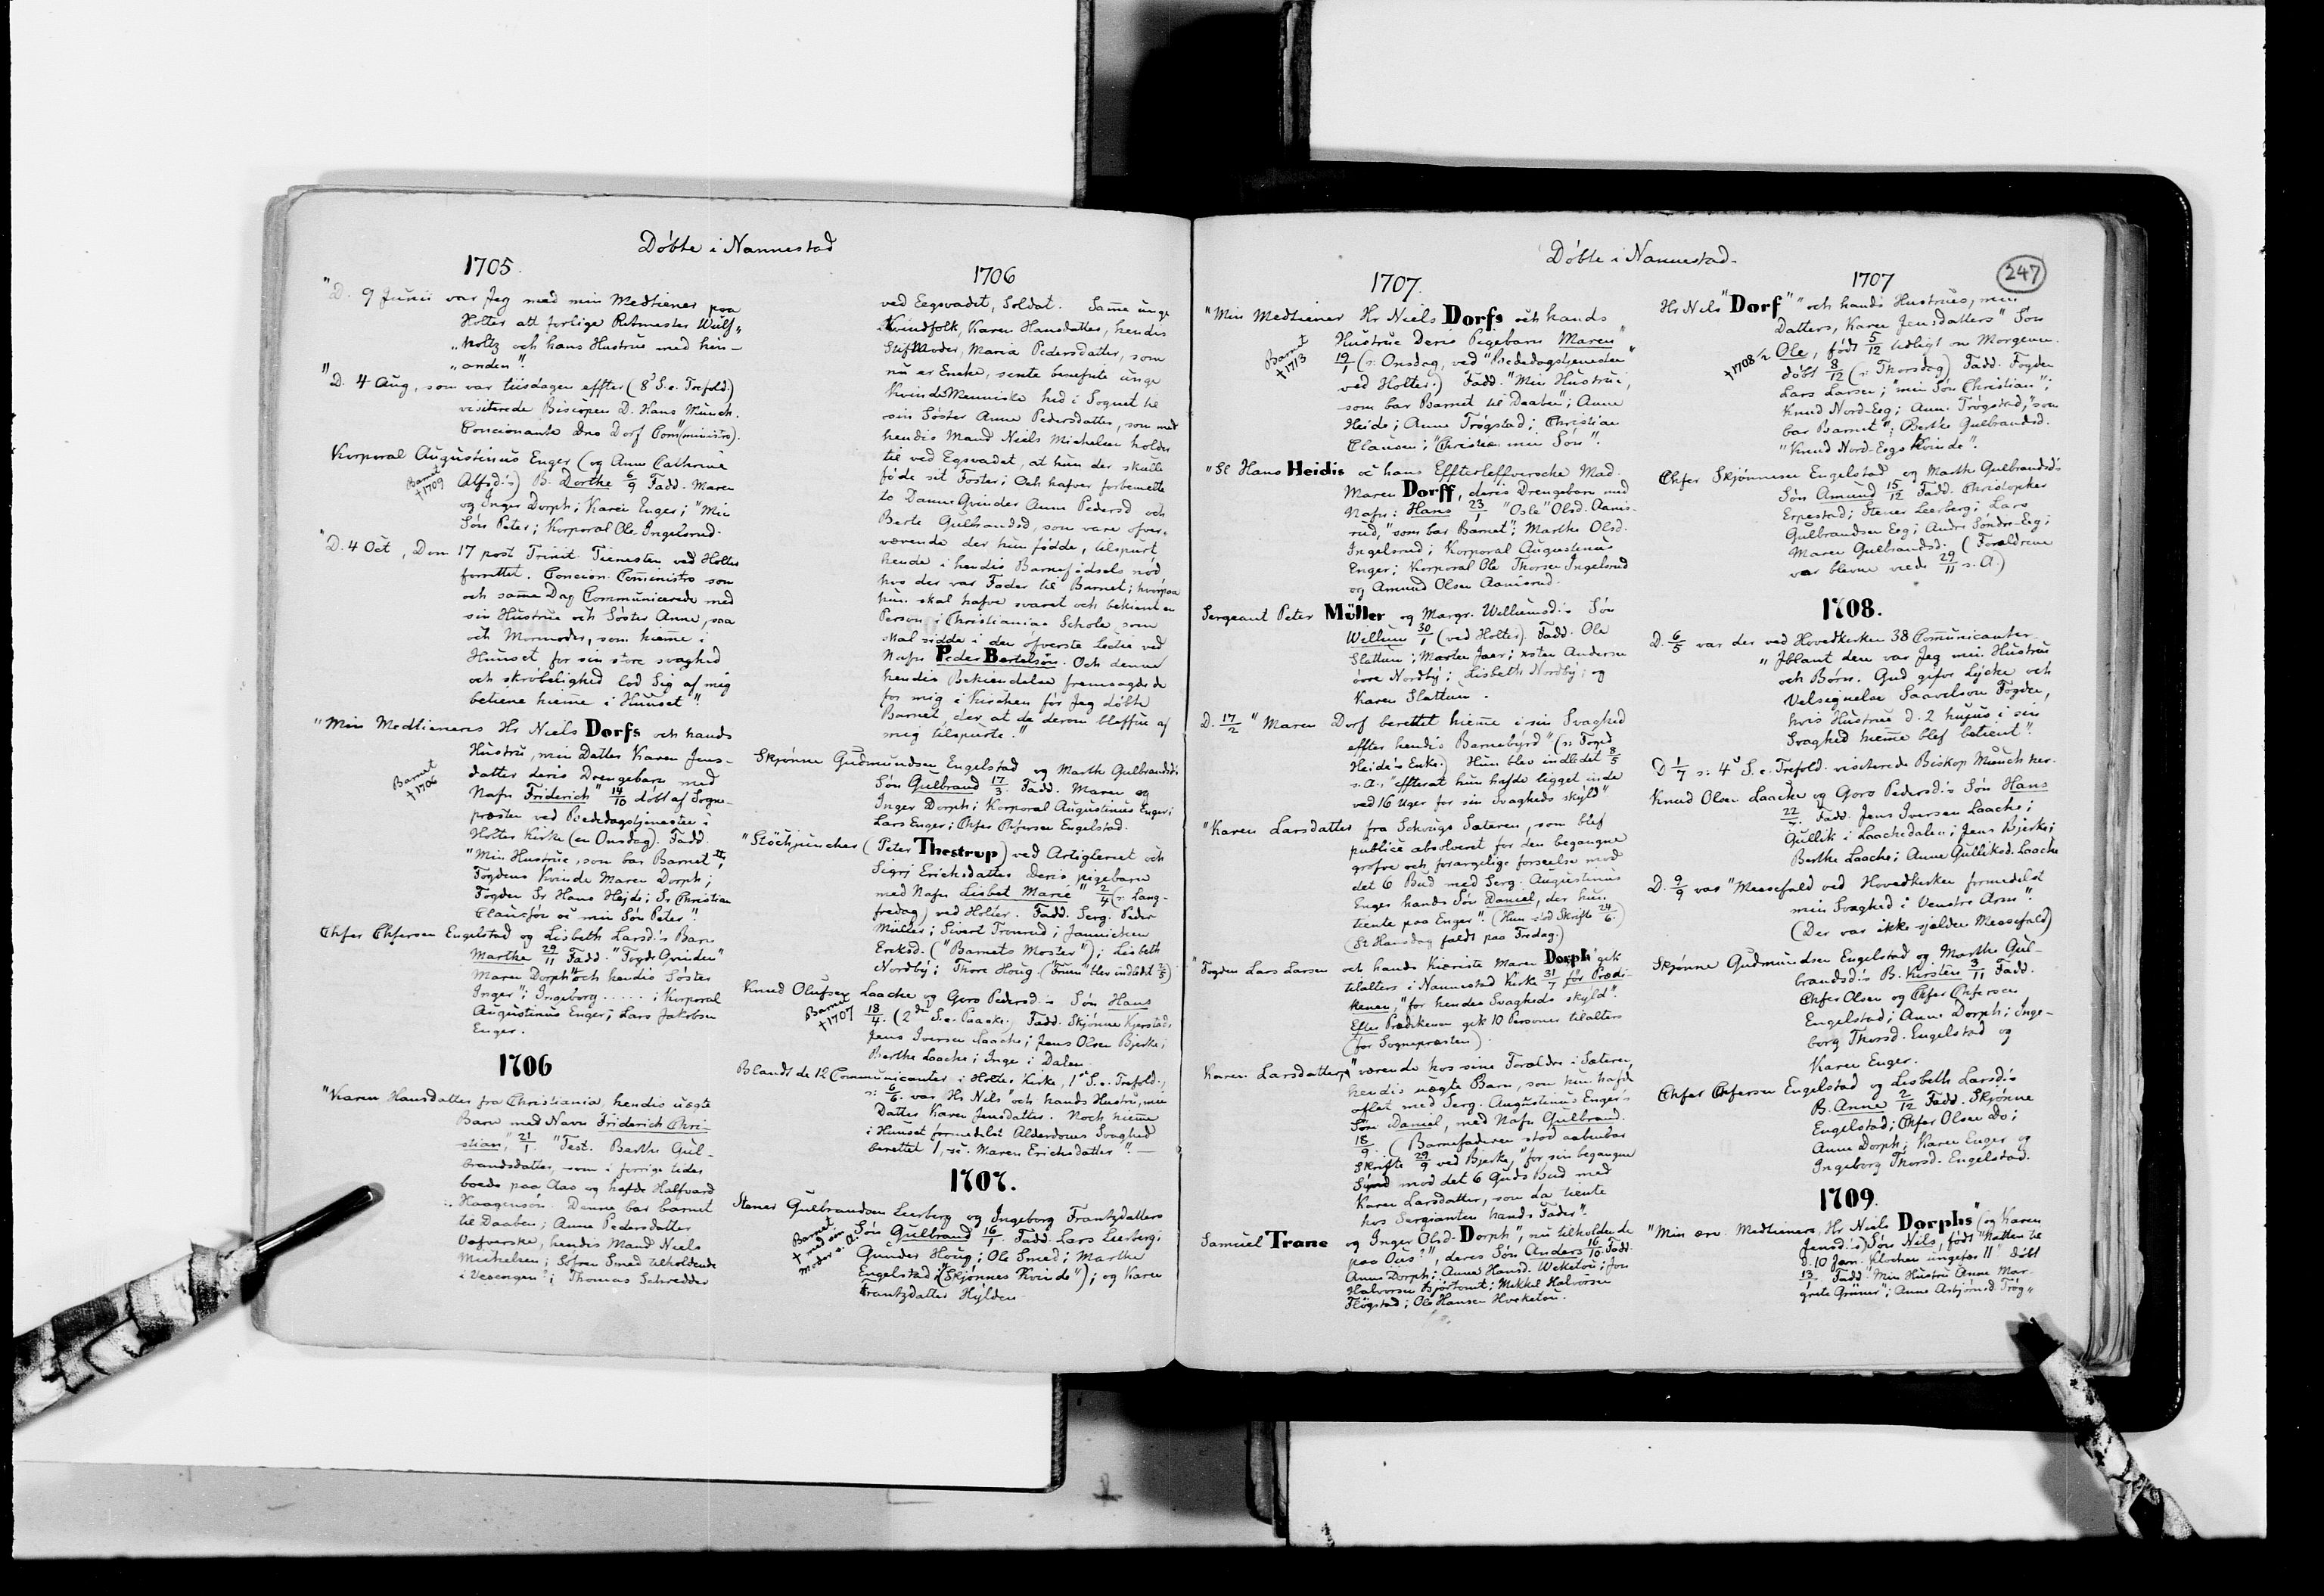 Döbte i Nannestad
1705.
"D. 9 Junii var Jeg med min Medtiener paa
Holter att forlige Ritmester Wulf„
„noltz och hans Hustrue med hin-
„anden".
"D. 4 Aug, som var tiisdagen effter (8 S. e. Trefold.)
visiterede Biscopen D. Hans Munch.
Concionante dno Dorf Com(ministro).
Korporal Augustinus Enger (og Anne Cathrine
Barnet
† 1709
Alfsd's) B. Dorthe 6/9 Fadd. Maren
og Inger Dorph; Karen Enger; "Min
Søn Peter; Korporal Ole Ingelsrud.
"D. 4 Oct, Dom 17 post Trinit. Tienesten ved Holter
forrettet. Concion. Comministro som
och samme Dag Communicerede med
sin Hustrue och Søster Anne, saa
och Mormoder, som hieme i
Huuset for sin store svaghed
och skröbelighed lod Sig af mig
betiene hieme i Huuset".
"Min Medtieneres Hr Niels Dorfs och hands
Hustru, min Datter Karen Jens-
datter deris Drengebarn med
Barnet
† 1706
Nafn Friderich" 14/10 döbt af Sogne-
præsten ved Bededagstjenesten i
Holter Kirke (en Onsdag). Fadd.
"Min Hustrue, som bar Barnet";
Fogdens Kvinde Maren Dorph;
Fogden Sr Hans Hejde; Sr Christian
Clausön oc min Søn Peter".
Chfer Chfersen Engelstad og Lisbeth Larsd's Barn
Marthe 29/11 Fadd. "Fogd Qvinden"
Maren Dorph "och hendis Søster
Inger"; Ingeborg . . . . . ; Korporal
Augustinus Enger; Lars Jakobsen
Enger.
1706
"Karen Hansdatter fra Christiania, hendis uægte
Barn med Navn Friderich Chri-
stian," 21/1. "Test. Barthe Gul-
brandsdatter, som i forrige tider
boede paa Aas og hafde Halfvard
Haagensön. Denne bar barnet
til Daaben; Anne Pedersdatter
Vafverske, hendis Mand Niels
Michelsen; Sofren Smed tilholdende
i Vesengen; Thomas Schrædder
1706
ved Eegsvadet, Soldat. Same unge
Kvindfolk, Karen Hansdatter, hendis
Stifmoder, Maria Pedersdatter, som
nu er Encke, sente benefnte unge
KvindeMenniske hid i Sognet til
sin Söster Anne Pedersdatter, som med
hendis Mand Niels Michelsen holder
til ved Egsvadet, at hun der skulle
føde sit Foster; Och hafver forbemelte
to DanneQvinder Anne Pedersd och
Berte Gulbrandsd, som vare ofver-
værende der hun födde, tilspurt
hende i hendis Barnefödsels nöd
hvo der var Fader til Barnet; hvorpaa
hun skal hafve svaret och bekient en
Person i Christianias Schole, som
skal sidde i den öfverste Lectie ved
Nafn Peder Bertelsön. Och denne
hendis Bekiendelse fremsagde de
for mig i Kirchen før Jeg döbte
Barnet, der at de derom bleffue af
mig tilspurte."
Skjønne Gudmundsen Engelstad og Marthe Gulbrandsd's
Søn Gulbrand 17/3. Fadd. Maren og
Inger Dorph; Korporal Augustinus Enger;
Lars Enger; Chfer Chfersen Engelstad.
"Stöchjuncher (Peter Thestrup) ved Artigleriet och
Sigrj Erichsdatter deris pigebarn
med Nafn Lisbet Marie" 2/4 (: Lang-
fredag) ved Holter. Fadd. Serg. Peder
Müller; Sivert Tronrud; Jannichen
Ericksd. ("Barnets Moster"); Lisbeth
Nordbÿ; Thore Houg.
Knud Olufsen Laache og Goro Pedersd's Søn Hans
Barnet
† 1707
18/4. (2den S. e. Paaske.) Fadd. Skjønne Kjerstad;
Jens Iversen Laache; Jens Olsen Bjerke;
Barthe Laache; Inge i Dalen.
Blandt de 12 Communicanter i Holter Kirke, 1st S. e. Trefold.,
: 6/6. var Hr Nils "och hands Hustru, min
Datter Karen Jensdatter. Noch hieme
i Huuset formedelst Alderdoms Svaghed
berettet 1, Maren Erichsdatter". —
1707.
Stener Gulbrandsen Leerberg og Ingeborg Frantzdatters
Barnet
† med sin
Moder s. A.
Søn Gulbrand 16/1. Fadd. Lars Leerberg;
Gunder Houg; Ole Smed; Marthe
Engelstad ("Skjönnes Kvinde"); og Karen
Frantzdatter Hÿlden.
Döbte i Nannestad.
247
1707.
"Min Medtiener Hr Niels Dorfs och hands
Hustrue Deris Pigebarn Maren"
Barnet
† 1713
19/1 (: Onsdag, ved "Bededagstjenesten"
ved Holter.) Fadd. "Min Hustrue,
som bar Barnet til Daaben"; Anne
Heide; Anne Trøgstad; Christian
Clausen; "Christian min Søn".
"Sl Hans Heidis oc hans Effterleffversche Mad.
Maren Dorff, deris Drengebarn med
Nafn: Hans 23/1 "Osle" Olsd. Aanis-
rud, "som bar Barnet"; Marthe Olsd.
Ingelsrud; Korporal Augustinus
Enger; Korporal Ole Thorsen Ingelsrud
og Amund Olsen Aanisrud.
Sergeant Peter Müller og Margr. Wellumsd's Søn
Willum 30/1 (ved Holter). Fadd. Ole
Slattum; Morten Jaer; xsten Andersen
övre Nordbÿ; Lisbeth Nordbÿ; og
Karen Slattum.
D. 17/2 "Maren Dorf berettet hieme i sin Svaghed
effter hendis Barnebÿrd" (: Fogd
Heide's Enke.) Hun blev indledet 8/5
s. A., "effterat hun hafde ligget inde
ved 16 Uger for sin Svagheds skÿld"
"Karen Larsdatter fra Schougs Sæteren, som blef
publicè absolveret for den begangne
grofve och forargelige forseelse mod
det 6 Bud med Serg. Augustinus
Enges hands Sön Daniel, der hun
tiente paa Enger". (Hun stod Skrifte 24/6.)
(St Hansdag faldt paa Fredag.)
"Fogden Lars Larsen och hands Kiæriste Maren Dorph" gik
tilalters i Nannestad Kirke 31/7 før Prædi-
kenen, "for hendes Svagheds skÿld".
Efter Prædikenen gik 10 Personer tilalters
(for Sognepræsten).
Karen Larsdatter, "værende hos sine Forældre i Sæteren,
hendis uægte Barn, som hun hafde
aflet med Serg. Augustinus Enger's
Søn Daniel, med Nafn Gulbrand.
18/9. (Barnefaderen stod aabenbar
Skrifte 29/9 ved Bjerke, "for sin begangne
Sÿnd mod det 6 Guds Bud med
Karen Larsdatter, som da tiente
hos Sergianten hands Fader".
Samuel Trane og Inger Olsd. Dorph", nu tilholdende
paa Ous?", deres Søn Anders 16/10. Fadd.
Anne Dorph; Anne Hansd. Weketou; Jon
Halvorsen Hjortomt; Mikkel Halvorsen
Flögstad; Ole Hansen Hveketou.
1707
Hr Nils "Dorf" "och hands Hustrues, min
Datters, Karen Jensdatters" Søn
† 1708 1/2
Ole, født 5/12 tidligt om Morgenen.
döbt 8/12 (: Thorsdag) Fadd. Fogden
Lars Larsen; "min Søn Christian";
Knud Nord-Eeg; Anne Trøgstad, "som
bar Barnet"; Berthe Gulbrandsd.
"Knud Nord-Eegs Kvinde".
Chfer Skjønnesen Engelstad og Marthe Gulbrandsd's
Søn Amund 15/12 Fadd. Christopher
Erpestad; Stener Leerberg; Lars
Gulbrandsen Eeg; Anders Søndre-Eeg;
Maren Gulbrandsd. (Forældrene
var blevne viede 29/11 s. A.)
1708.
D. 6/5 var der ved Hovedkirken 38 Communicanter.
"Iblant dem var Jeg min Hustrue
och Børn. Gud gifve Lÿcke och
Velsignelse Saavelsom Fogden,
hvis Hustrue d. 2 hujus i sin
Svaghed hieme blef betient".
D 1/7 : 4 S. e. Trefold. visiterede Biskop Munch her.
Knud Olsen Laache og Goro Pedersd's Søn Hans
22/7. Fadd. Jens Iversen Laache;
Gullik i Laachedalen; Jens Bjerke;
Berthe Laache; Anne Gulliksd. Laache
D. 9/9 var "Messefald ved Hovedkirken formedelst
min Svaghed i Venstre Arm".
(Der var ikke sjelden Messefald)
Skjønne Gudmundsen Engelstad og Marthe Gul-
brandsd's B. Kirsten 3/11 Fadd.
Chfer Olsen og Chfer Chfersen
Engelstad; Anne Dorph; Inge-
borg Thorsd. Engelstad og
Karen Enger.
Chfer Chfersen Engelstad og Lisbeth Larsd's
B. Anne 2/12 Fadd. Skjønne
Engelstad; Chfer Olsen do;
Anne Dorph; Karen Enger og
Ingeborg Thorsd. Engelstad.
1709.
"Min ærv. Medtieners Hr Niels Dorphs" (og Karen
Jensd's) Søn Nils, født "Natten til
d. 10 Jan. Klochen ungefær 11" döbt
13/1. Fadd. "Min Hustru Anne Mar-
grete Grüner"; Anne Asbjørnsd. Trög„